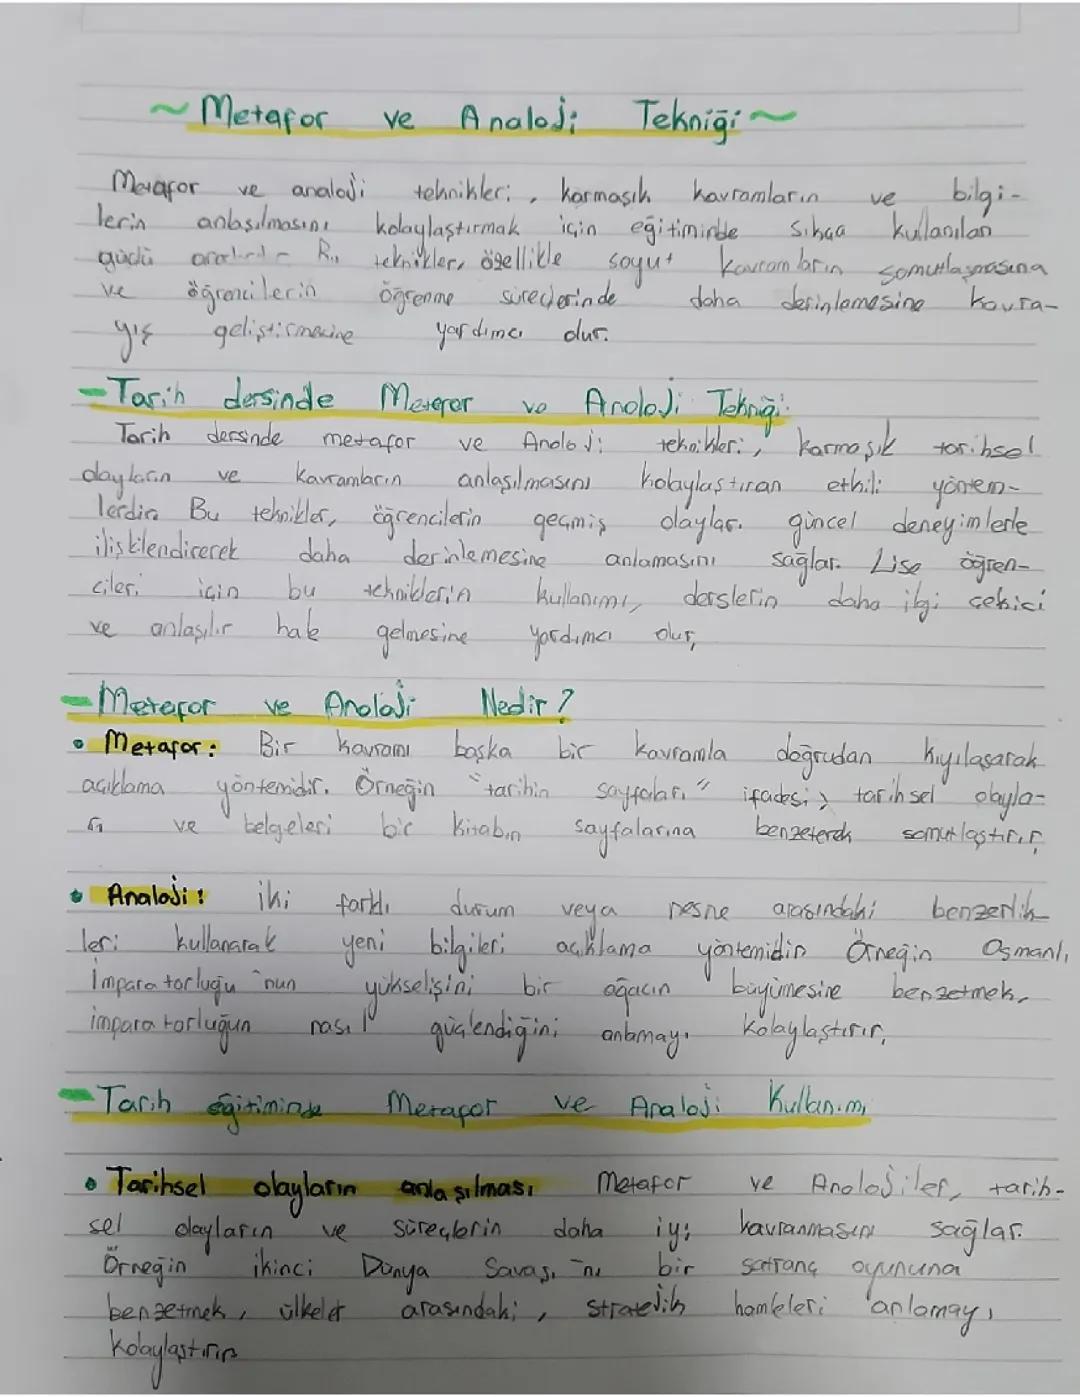 ~ Metafor ve Analoji Tekniği ~
Metafor ve analoji teknikleri, karmaşık kavramların ve bilgi-
lerin anlaşılmasını kolaylaştırmak için eğitiminde sıkça kullanılan
güçlü teknikler, özellikle soyut kavramların somutlaşmasına
ve öğrencilerin öğrenme süreçlerinde daha derinlemesine kavra-
yış geliştirmesine yardımcı olur.
- Tarih dersinde Metafor ve Analoji Tekniği:
Tarih dersinde metafor ve Analoji teknikleri, karmaşık tarihsel
olayların ve kavramların anlaşılmasını kolaylaştıran etkili yöntem-
lerdir. Bu teknikler, öğrencilerin geçmiş olayları güncel deneyimlerle
ilişkilendirerek daha derinlemesine anlamasını sağlar. Lise öğren-
cileri için bu tekniklerin kullanımı, derslerin daha ilgi çekici
ve anlaşılır hale gelmesine yardımcı olur.
- Metafor ve Analoji Nedir?
• Metafor: Bir kavramı başka bir kavramla doğrudan kıyılaşarak
açıklama yöntemidir. Örneğin "tarihin sayfaları" ifadesi, tarihsel olayla-
rı ve belgeleri bir kitabın sayfalarına benzeterek somutlaştırır.
• Analoji: iki farklı durum veya nesne arasındaki benzerlik-
leri kullanarak yeni bilgileri açıklama yöntemidir. Örneğin Osmanlı
İmparatorluğu'nun yükselişini bir ağacın büyümesine benzetmek,
imparatorluğun nasıl güçlendiğini anlamayı kolaylaştırır.
- Tarih eğitiminde Metafor ve Analoji Kullanımı
• Tarihsel olayların anlaşılması Metafor ve Analojiler, tarih-
sel olayların ve süreçlerin daha iyi kavranmasını sağlar.
Örneğin ikinci Dünya Savaşı'nı bir satranç oyununa
benzetmek, ülkeler arasındaki, stratejik hamleleri anlamayı
kolaylaştırır.